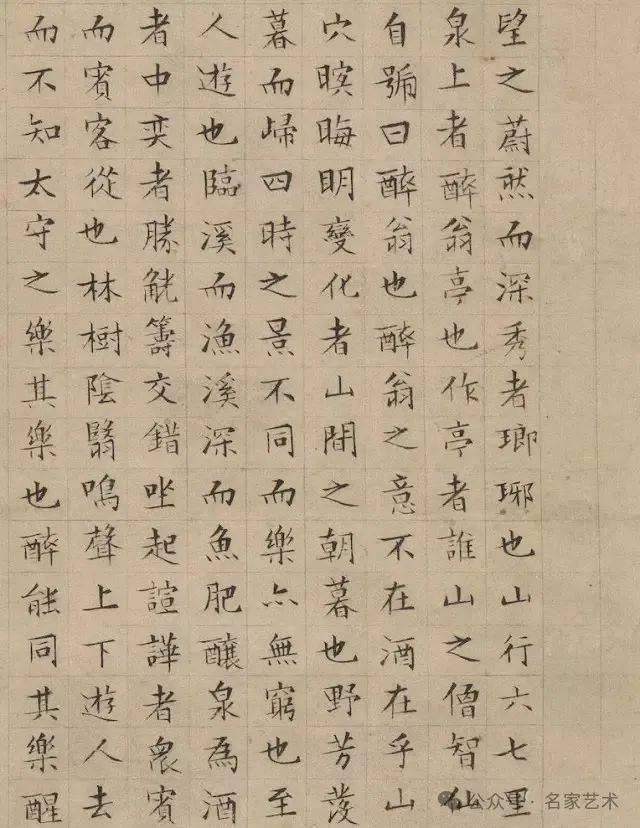 望之蔚然而深秀者瑯琊也山行六七里
泉上者醉翁亭也作亭者誰山之僧智仙
自號曰醉翁也醉翁之意不在酒在乎山
穴暝晦明變化者山間之朝暮也野芳發
暮而歸四時之景不同而樂亦無窮也至
人遊也臨溪而漁溪深而魚肥釀泉為酒
者中奕者勝觥籌交錯坐起諠譁者眾賓
而賓客從也林樹陰翳鳴聲上下遊人去
而不知太守之樂其樂也醉能同其樂醒
公众号 · 名家艺术